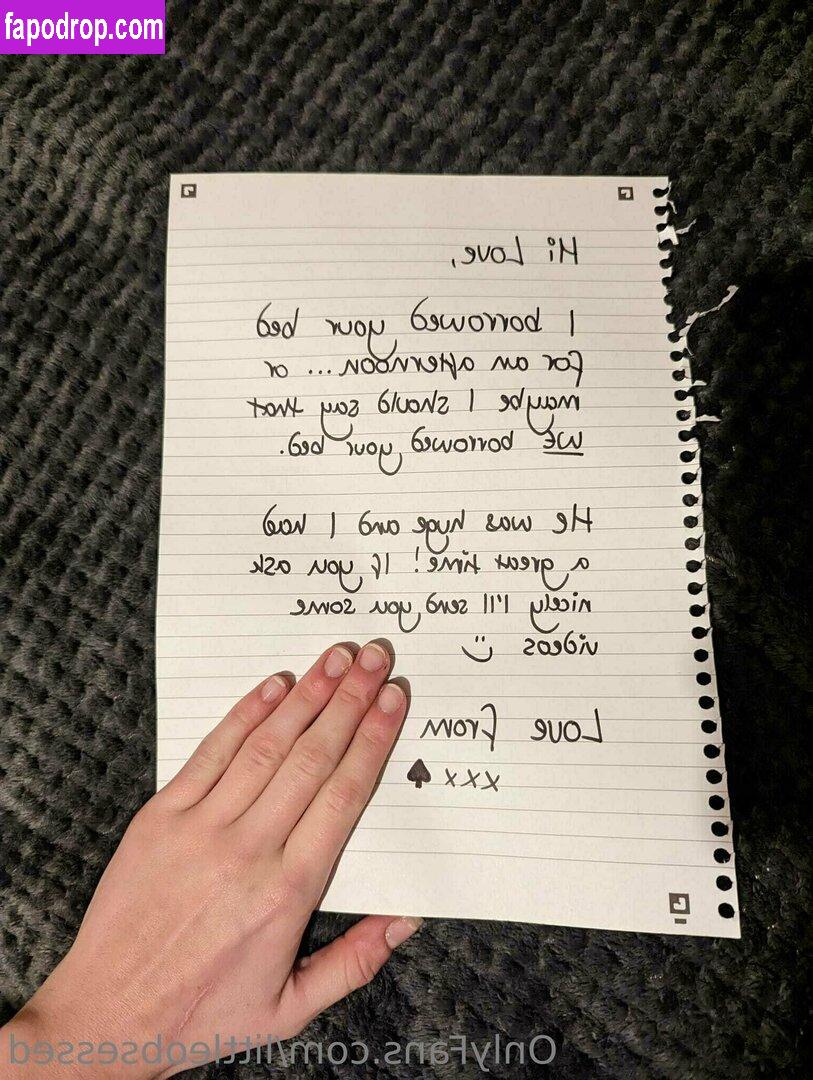 fapodrop.com
Hi Love,
I borrowed your bed
for an afternoon ... or
maybe I should say that
WE borrowed your bed.
He was huge and I had
a great time! If you ask
nicely I'll send you some
videos :)
Love from
xxx ♠
OnlyFans.com/littleobsessed